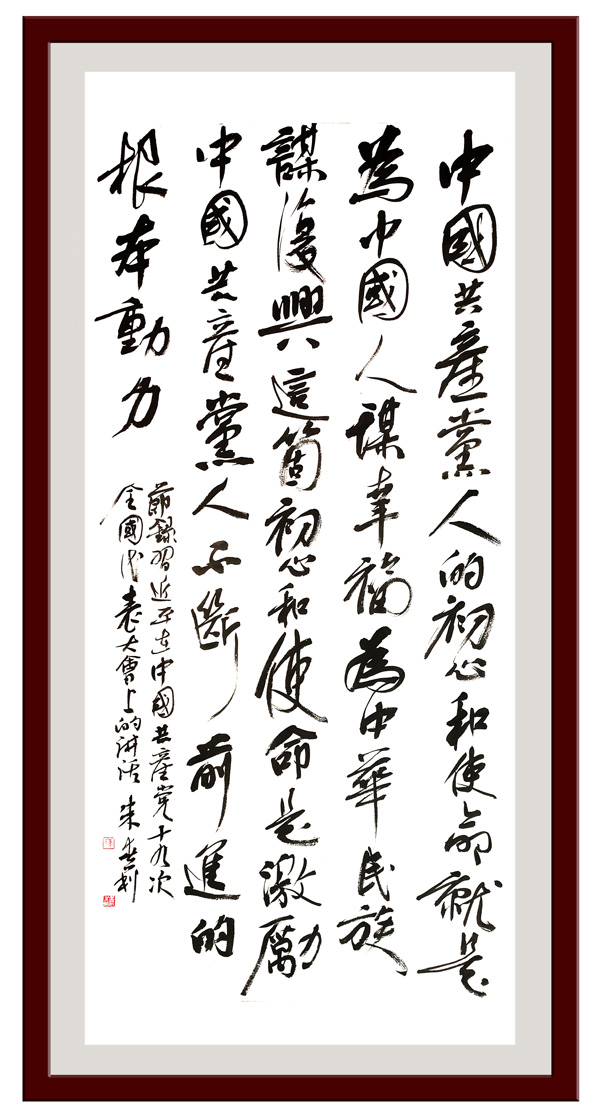 中國共産黨人的初心和使命就是
為中國人謀幸福為中華民族
謀復興這箇初心和使命是激厲
中國共産黨人不斷前進的
根本動力
節錄習近平在中國共産党十九次
全國代表大會上的讲话 朱